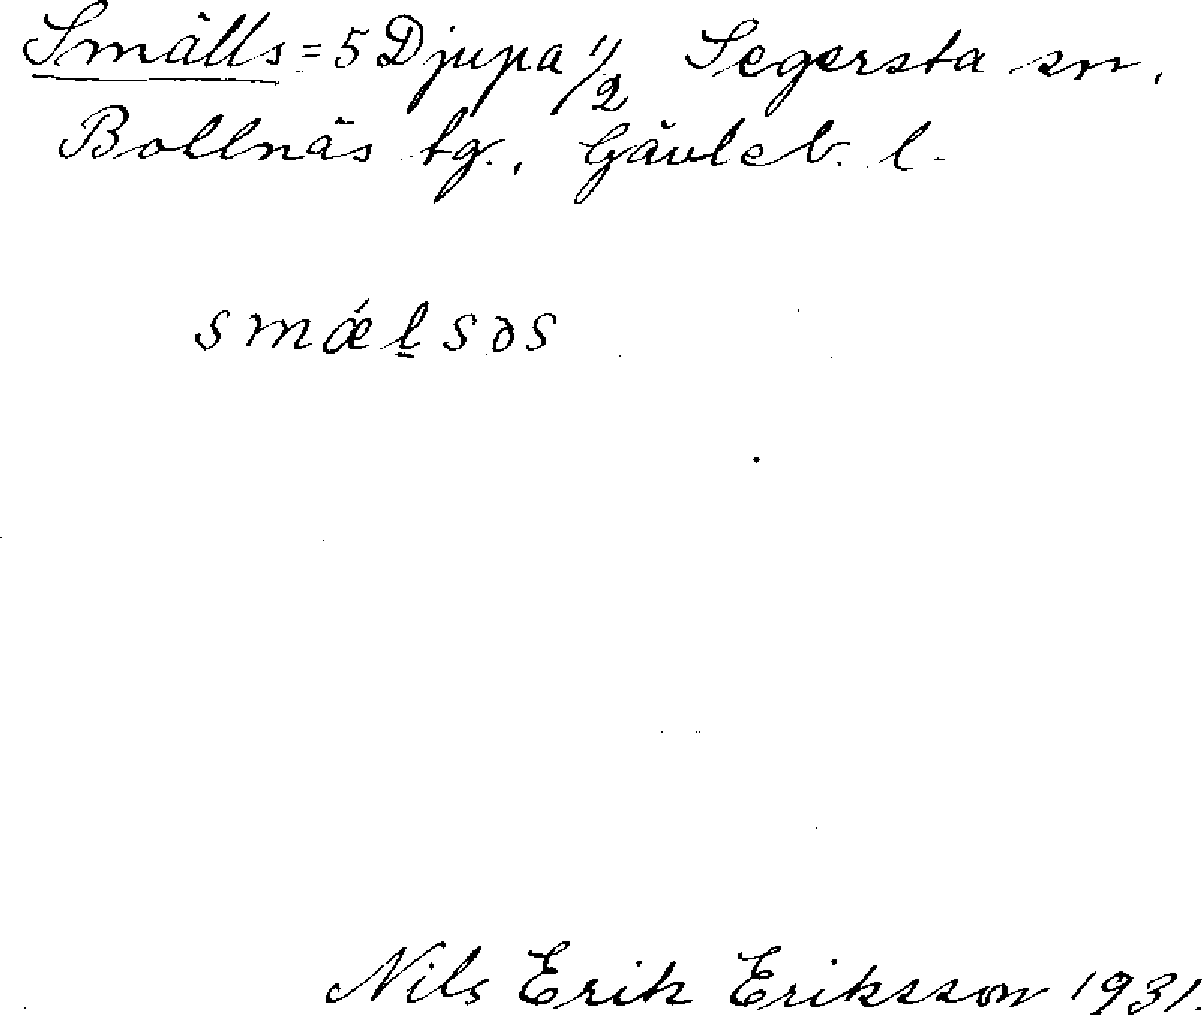 Smälls = 5 Djupa 1/2 Segersta sn.
Bollnäs tg., Gävleb. l.
smǽl̠səs
Nils Erik Eriksson 1931.